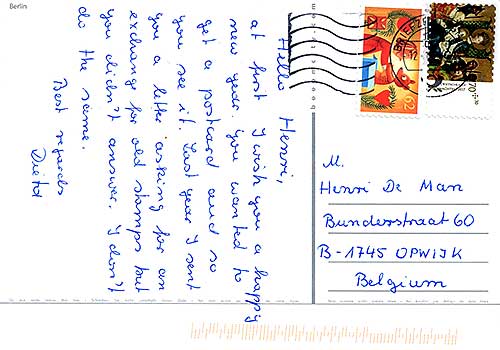 Berlin
Hello Henri,
at first I wish you a happy
new year. You wanted to
get a postcard and so
you see it. Last year I sent
you a letter asking for an
exchange for old stamps but
you didn't answer. I don't
do the same.
Best regards
62
70
M.
Henri De Man
Bunderstraat 60
B-1745 OPWIJK
Belgium